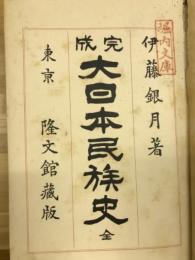 堀内文庫
伊藤銀月著
完成
大日本民族史
全
東京 隆文館藏版